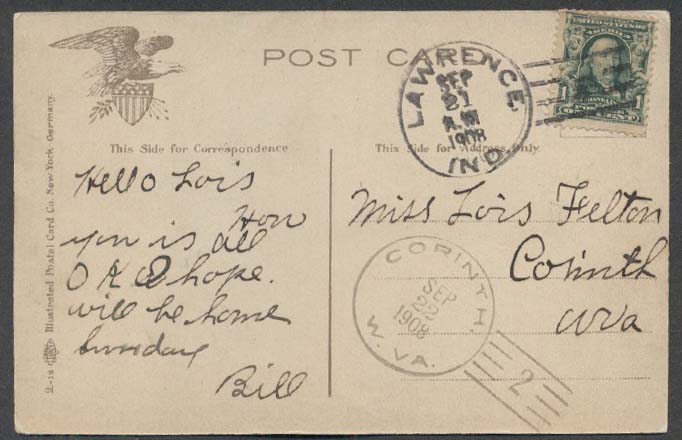 POST CARD
LAWRENCE, IND.
SEP
21
A.M
1908
1 1
ONE CENT
This Side for Correspondence
This Side for Address Only.
Hello Lois
Hon
you is all
O K I hope.
will be home
Sunday
Bill
Miss Lois Felton
Corinth
WVa
CORINTH, W. VA.
SEP
22
1908
2
2.-18 Illustrated Postal Card Co. New York, Germany.